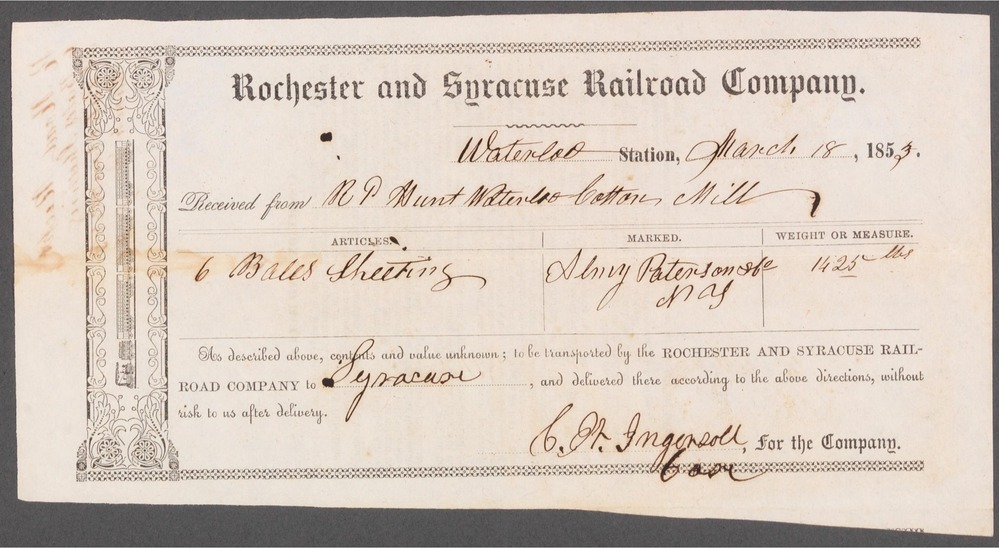 Rochester and Syracuse Railroad Company.
Waterloo Station, March 18, 1853.
Received from R P Hunt Waterloo Cotton Mill
ARTICLES. MARKED. WEIGHT OR MEASURE.
6 Bales Sheeting Almy Paterson & Co 1425 lbs
N Y
As described above, contents and value unknown; to be transported by the ROCHESTER AND SYRACUSE RAIL-
ROAD COMPANY to Syracuse, and delivered there according to the above directions, without
risk to us after delivery.
Ingersoll, For the Company.